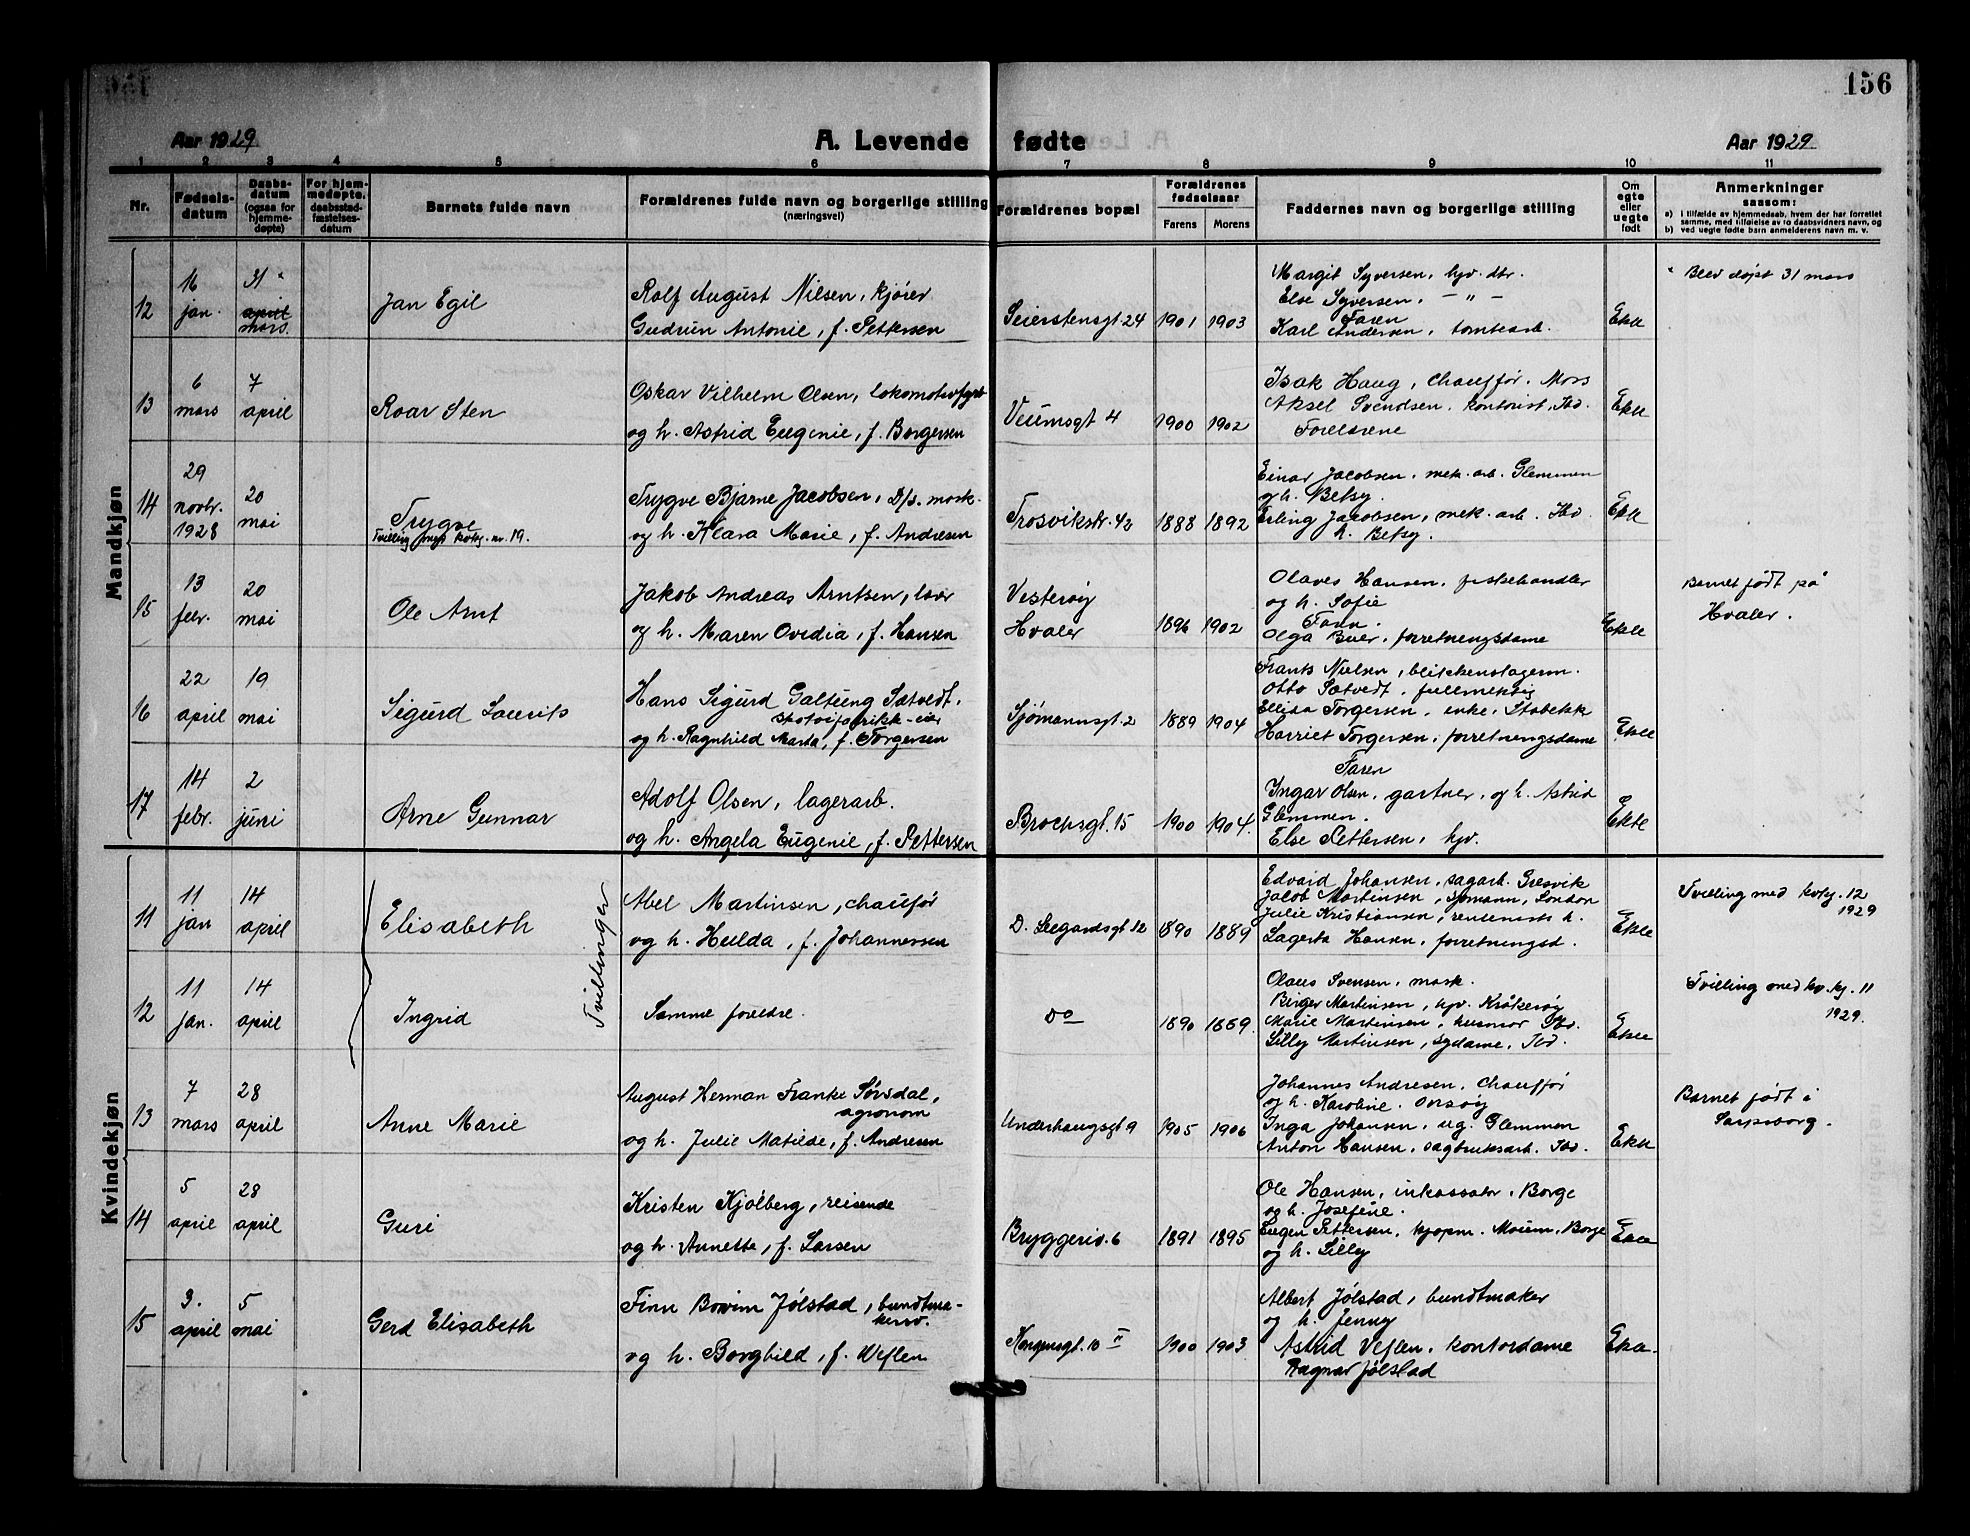 156
Aar 1929
A. Levende fødte
Aar 1929
1 2 3 4 5 6 7 8 9 10 11
Nr.
Fødsels-
datum
Daabs-
datum
(ogsaa for
hjemme-
døpte)
For hjem-
medøpte,
daabsstad-
fæstelses-
datum
Barnets fulde navn
Forældrenes fulde navn og borgerlige stilling
(næringsvei)
Forældrenes bopæl
Forældrenes
fødselsaar
Farens Morens
Faddernes navn og borgerlige stilling
Om
egte
eller
uegte
født
Anmerkninger
saasom:
a) i tilfælde av hjemmedaab, hvem der har forrettet
samme, med tilføielse av to daabsvidners navn, og
b) ved uegte fødte barn anmelderens navn m. v.
Mandkjøn
12
16
jan.
31
april
mars.
Jan Egil
Rolf August Nilsen, kjører
Gudrun Antonie, f. Pettersen
Seierstensgt. 24
1901 1903
Margit Syversen, hjv. dtr.
Else Syversen, — " —
Faren
Karl Andersen, tomtearb.
Ekte
Blev døpt 31 mars
13
6
mars
7
april
Roar Sten
Oskar Vilhelm Olsen, lokomotivfyrb
og h. Astrid Eugenie, f. Borgersen
Veumsgt 4
1900 1902
Isak Haug, chauffør, Moss
Aksel Svendsen, kontorist, Ibd.
Foreldrene
Ekte
14
29
novbr.
1928
20
mai
Trygve
Tvilling med kvkj. nr. 19.
Trygve Bjarne Jacobsen, D/s. mask.
og h. Klara Marie, f. Andresen
Trosvikstr. 42
1888 1892
Einar Jacobsen, mek. arb. Glemmen
og h. Betsy.
Erling Jacobsen, mek. arb. Ibd.
h. Betsy.
Ekte
15
13
febr.
20
mai
Ole Arnt
Jakob Andreas Arntsen, lær
og h. Maren Ovidia, f. Hansen
Vesterøy
Hvaler
1896 1902
Olaves Hansen, fiskehandler
og h. Sofie
Olga Buer, forretningsdame
Ekte
Barnet født på
Hvaler.
16
22
april
19
mai
Sigurd Laurits
Hans Sigurd Galtung Sætvedt,
skotøifabrikk-eier
og h. Ragnhild Marta, f. Torgersen
Sjømannsgt. 2
1889 1904
Frants Nielsen, blikkenslagerm.
Otto Sætvedt, fullmektig
Ellida Torgersen, enke, Stabekk
Harriet Torgersen, forretningsdame
Ekte
17
14
febr.
2
juni
Arne Gunnar
Adolf Olsen, lagerarb.
og h. Angela Eugenie, f. Pettersen
Brochsgt. 15
1900 1904.
Faren
Ingar Olsen, gartner, og h. Astrid
Glemmen.
Else Pettersen, hjv.
Ekte
Kvindekjøn
11
11
jan
14
april
Elisabeth
Tvillinger
Abel Martinsen, chaufør
og h. Hulda, f. Johannessen
D. Leegardsgt 12
1890 1889
Edvard Johansen, sagarb. Gresvik
Jacob Martinsen, sjømann, London
Julie Kristiansen, rentenists h.
Lagerta Hansen, forretningsd.
Ekte
Tvilling med kvkj. 12
1929
12
11
jan.
14
april
Ingrid
Samme foreldre.
do
1890 1889.
Olaus Svensen, mask.
Birger Martinsen, hjv. Kråkerøy
Marie Martinsen, husmor Ibd.
Lilly Martinsen, sydame, Ibd.
Ekte
Tvilling med kv. kj. 11
1929.
13
7
mars
28
april
Anne Marie
August Herman Franke Sørsdal,
agronom
og h. Julie Matilde, f. Andresen
Underhaugsgt 9
1905 1906
Johannes Andresen, chauffør
og h. Karoline. Onsøy
Inga Johansen, ug. Glemmen
Anton Hansen, sagbruksarb. Ibd.
Ekte
Barnet født i
Sarpsborg.
14
5
april
28
april
Guri
Kristen Kjølberg, reisende
og h. Annette, f. Larsen
Bryggeriv. 6
1891 1895
Ole Hansen, inkassator, Borge
og h. Josefine.
Eugen Pettersen, kjøpm. Moum, Borge
og h. Lilly
Ekte
15
3.
april
5
mai
Gerd Elisabeth
Finn Bovim Jølstad, bundtma-
kersv.
og h. Borghild, f. Veflen
Kongensgt. 10 II
1900 1903
Albert Jølstad, bundtmaker
og h. Jenny
Astrid Veflen, kontordame
Ragnar Jølstad
Ekte.